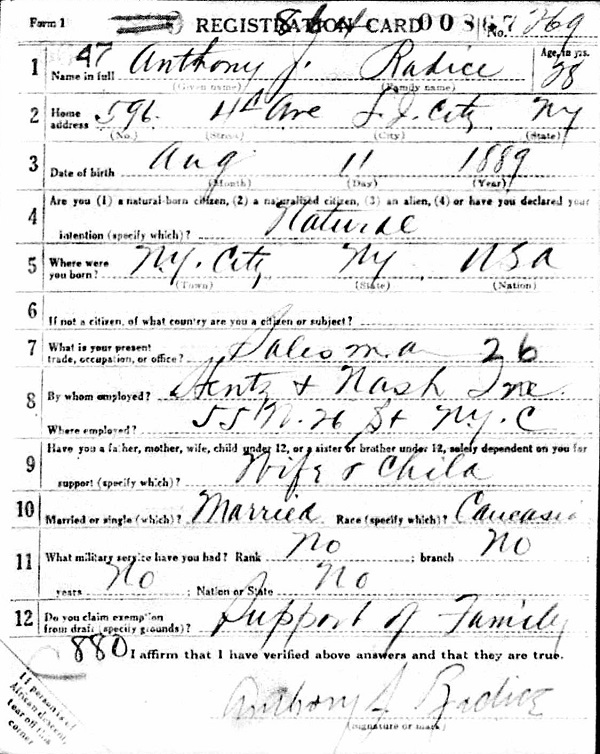 Form 1 REGISTRATION CARD No. 269
1 47 Anthony J. Radice Age, in yrs. 28
Name in full (Given name) (Family name)
2 Home address 596 4th Ave L.I. City NY
(No.) (Street) (City) (State)
3 Date of birth Aug 11 1889
(Month) (Day) (Year)
4 Are you (1) a natural-born citizen, (2) a naturalized citizen, (3) an alien, (4) or have you declared your
intention (specify which)? Natural
5 Where were you born? N.Y. City NY USA
(Town) (State) (Nation)
6 If not a citizen, of what country are you a citizen or subject?
7 What is your present trade, occupation, or office? Salesman 26
8 By whom employed? Hentz & Nash Inc.
Where employed? 55 W. 26 St N.Y.C
9 Have you a father, mother, wife, child under 12, or a sister or brother under 12, solely dependent on you for
support (specify which)? Wife & Child
10 Married or single (which)? Married Race (specify which)? Caucasia
11 What military service have you had? Rank No ; branch No
years No ; Nation or State No
12 Do you claim exemption from draft (specify grounds)? Support of Family
880 I affirm that I have verified above answers and that they are true.
Anthony J Radice
(Signature or mark)
If person is of
African descent,
tear off this
corner